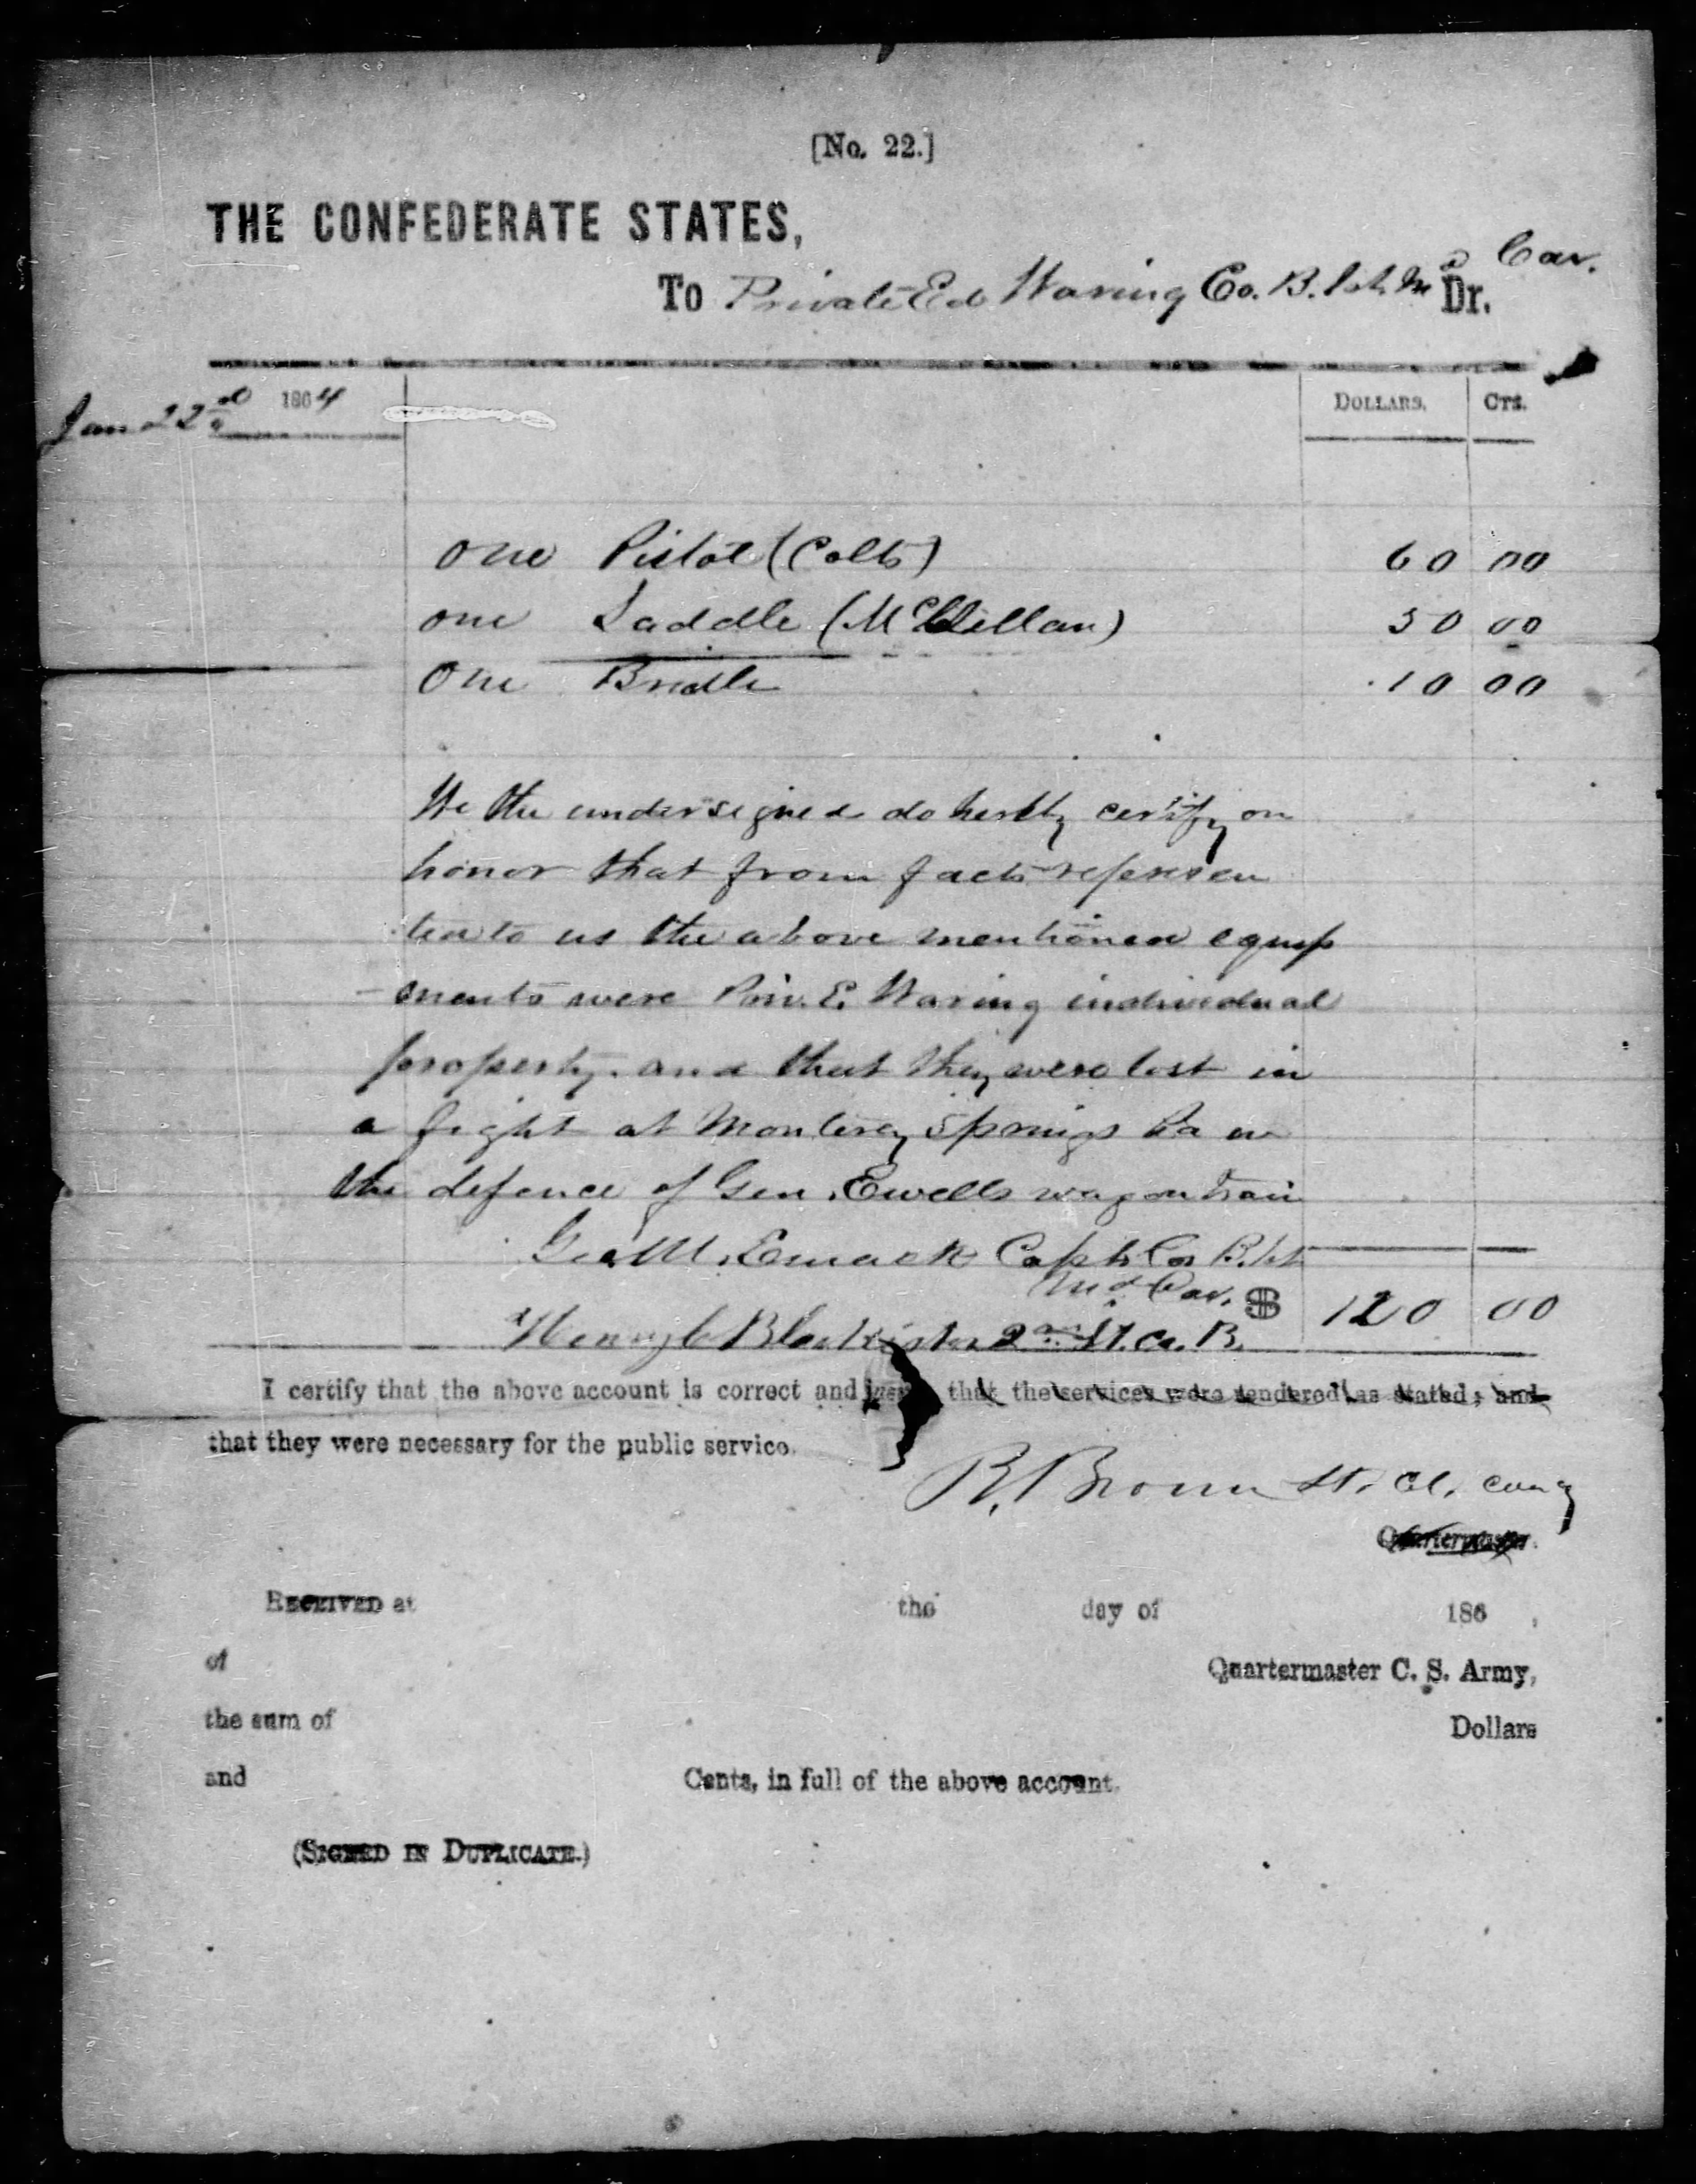 [No. 22.]
THE CONFEDERATE STATES,
To Private Ed Waring Co. B. 1st Md Cav. Dr.
Jan 22nd 1864
DOLLARS. CTS.
One Pistol (Colts) 60 00
one Saddle (McClellan) 50 00
One Bridle 10 00
We the undersigned do hereby certify on
honor that from facts represen
ted to us the above mentioned equip
-ments were Priv. E. Waring individual
property. and that they were lost in
a fight at Monterey Springs Pa in
the defence of Gen. Ewells wagon train
Geo M. Emack Capt. Co B. 1st
Md Cav. $ 120 00
Henry C Blackiston 2nd Lt. Co. B.
I certify that the above account is correct and just that the services were rendered as stated; and
that they were necessary for the public service.
R. Brown Lt. Col. Comg
Quartermaster.
RECEIVED at the day of 186 ,
of Quartermaster C. S. Army,
the sum of Dollars
and Cents, in full of the above account.
(SIGNED IN DUPLICATE.)